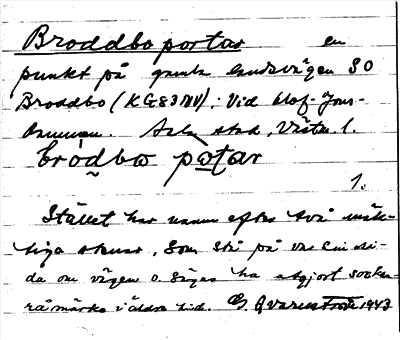 Broddbo portar en
punkt på gamla landsvägen SO
Broddbo (KG83NV), vid Olof-Jons-
Sala stad, Västm. l.
bròdbω po̯tar
1.
Stället har namn efter två mäk-
tiga stenar, som stå på var sin si-
da om vägen o. säges ha utgjort socken-
råmärke i äldre tid. G. Qvarnström 1943